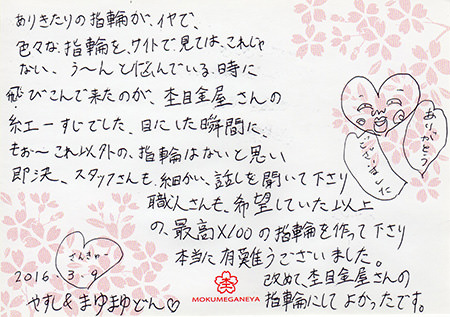 ありきたりの指輪が、イヤで、
色々な、指輪を、サイトで見ては、これじゃ
ない、う〜んと悩んでいる、時に
飛びこんで来たのが、杢目金屋さんの
紅一すじでした、目にした瞬間に、
もぉ〜これ以外の、指輪はないと思い
即決、スタッフさんも、細かい、話しを聞いて下さり
職人さんも、希望していた以上
の、最高X100の指輪を作って下さり
本当に有難うございました。
改めて、杢目金屋さんの
指輪にして よかったです。
ありがとう
ございました
さんきゅー
2016.3.9
やすし&まゆまゆどん♡
MOKUMEGANEYA